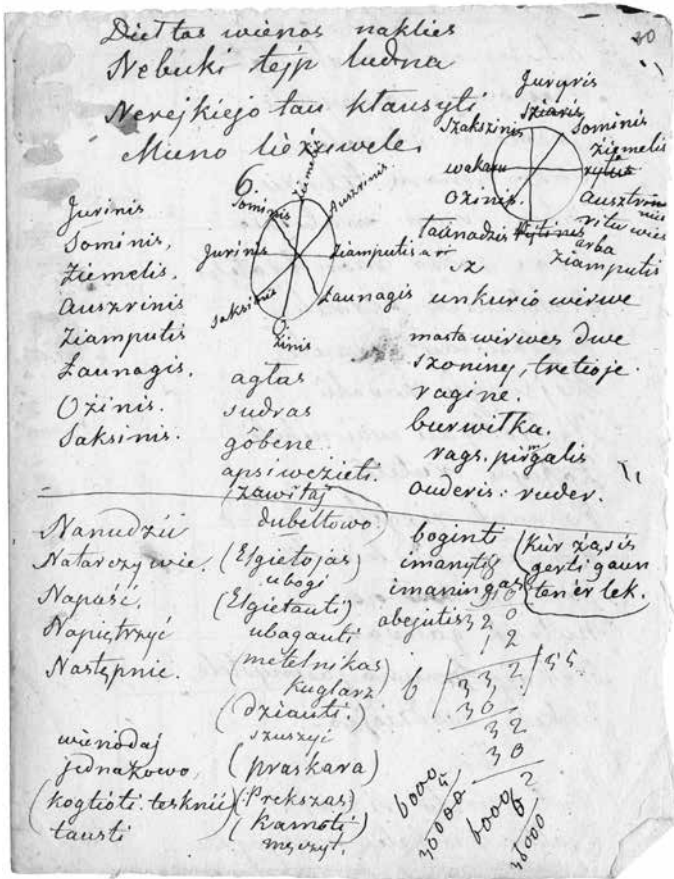 20
Dieltas wienas naklies
Nebuki tejp ludna
Nereјkiejo tau kłausyti
Muno liežuwele.
Juryris
Sziaris
Szakszinis
Sominis
Ziemelis
wakaru
rytus
Ožinis.
Ausztrinnis
taunadzis
Rytinis
ritu wies
arba
ziamputis
6.
Sominis
Auszrinis
Jurinis
Ziamputis
Saksinis
Launagis
O.
zinis
Jurinis
Sominis,
Ziemelis.
Auszrinis
Ziamputis
Launagis.
Ožinis.
Saksinis.
agłas
sudras
gôbene.
apsiwezieti.
zawitaj
dubeltowo
sz
unkurio wirwe
masta wirwes dwe
szoniny, tretioje.
ragine.
burwitka.
rags. pirmgalis
ouderis: ruder.
Nanudzić
Natarczywie.
Napuść.
Napiętrzyć
Następnie.
wienodaj
jednakowo,
(kogtioti. tesknić)
tausti
(Elgietojas)
ubogi
(Elgietauti)
ubagauti
(metelnikas
kuglarz)
(dziauti.)
szuszyi
(praskara)
(Prekszas)
(kamoti
męczyt.
boginti
imanytis
imaningas
abejutis
(Kur żąsis
gerti gaun
ten ėr lek.
320
12
6 / 332 / 55
30
32
30
2
6000
6
36000
6000
6
36000